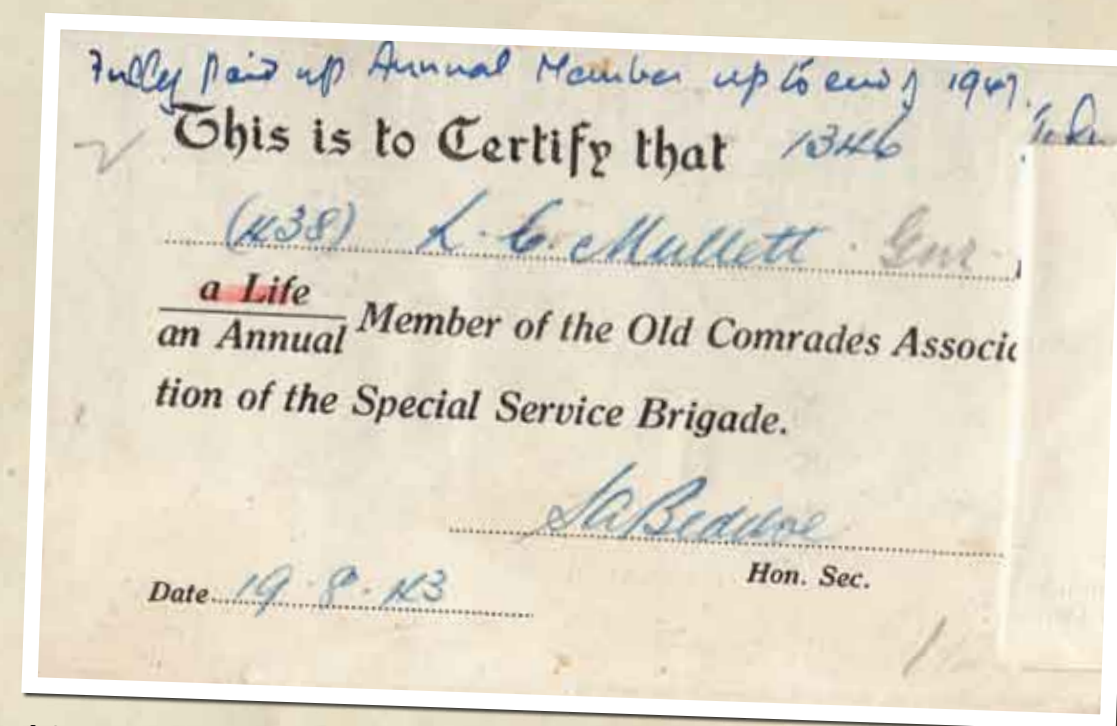 Fully paid up Annual Member up to end of 1947.
This is to Certify that 1346
(438) L. C. Mullett Gnr
a Life
an Annual Member of the Old Comrades Associa
tion of the Special Service Brigade.
Hon. Sec.
Date 19.8.43